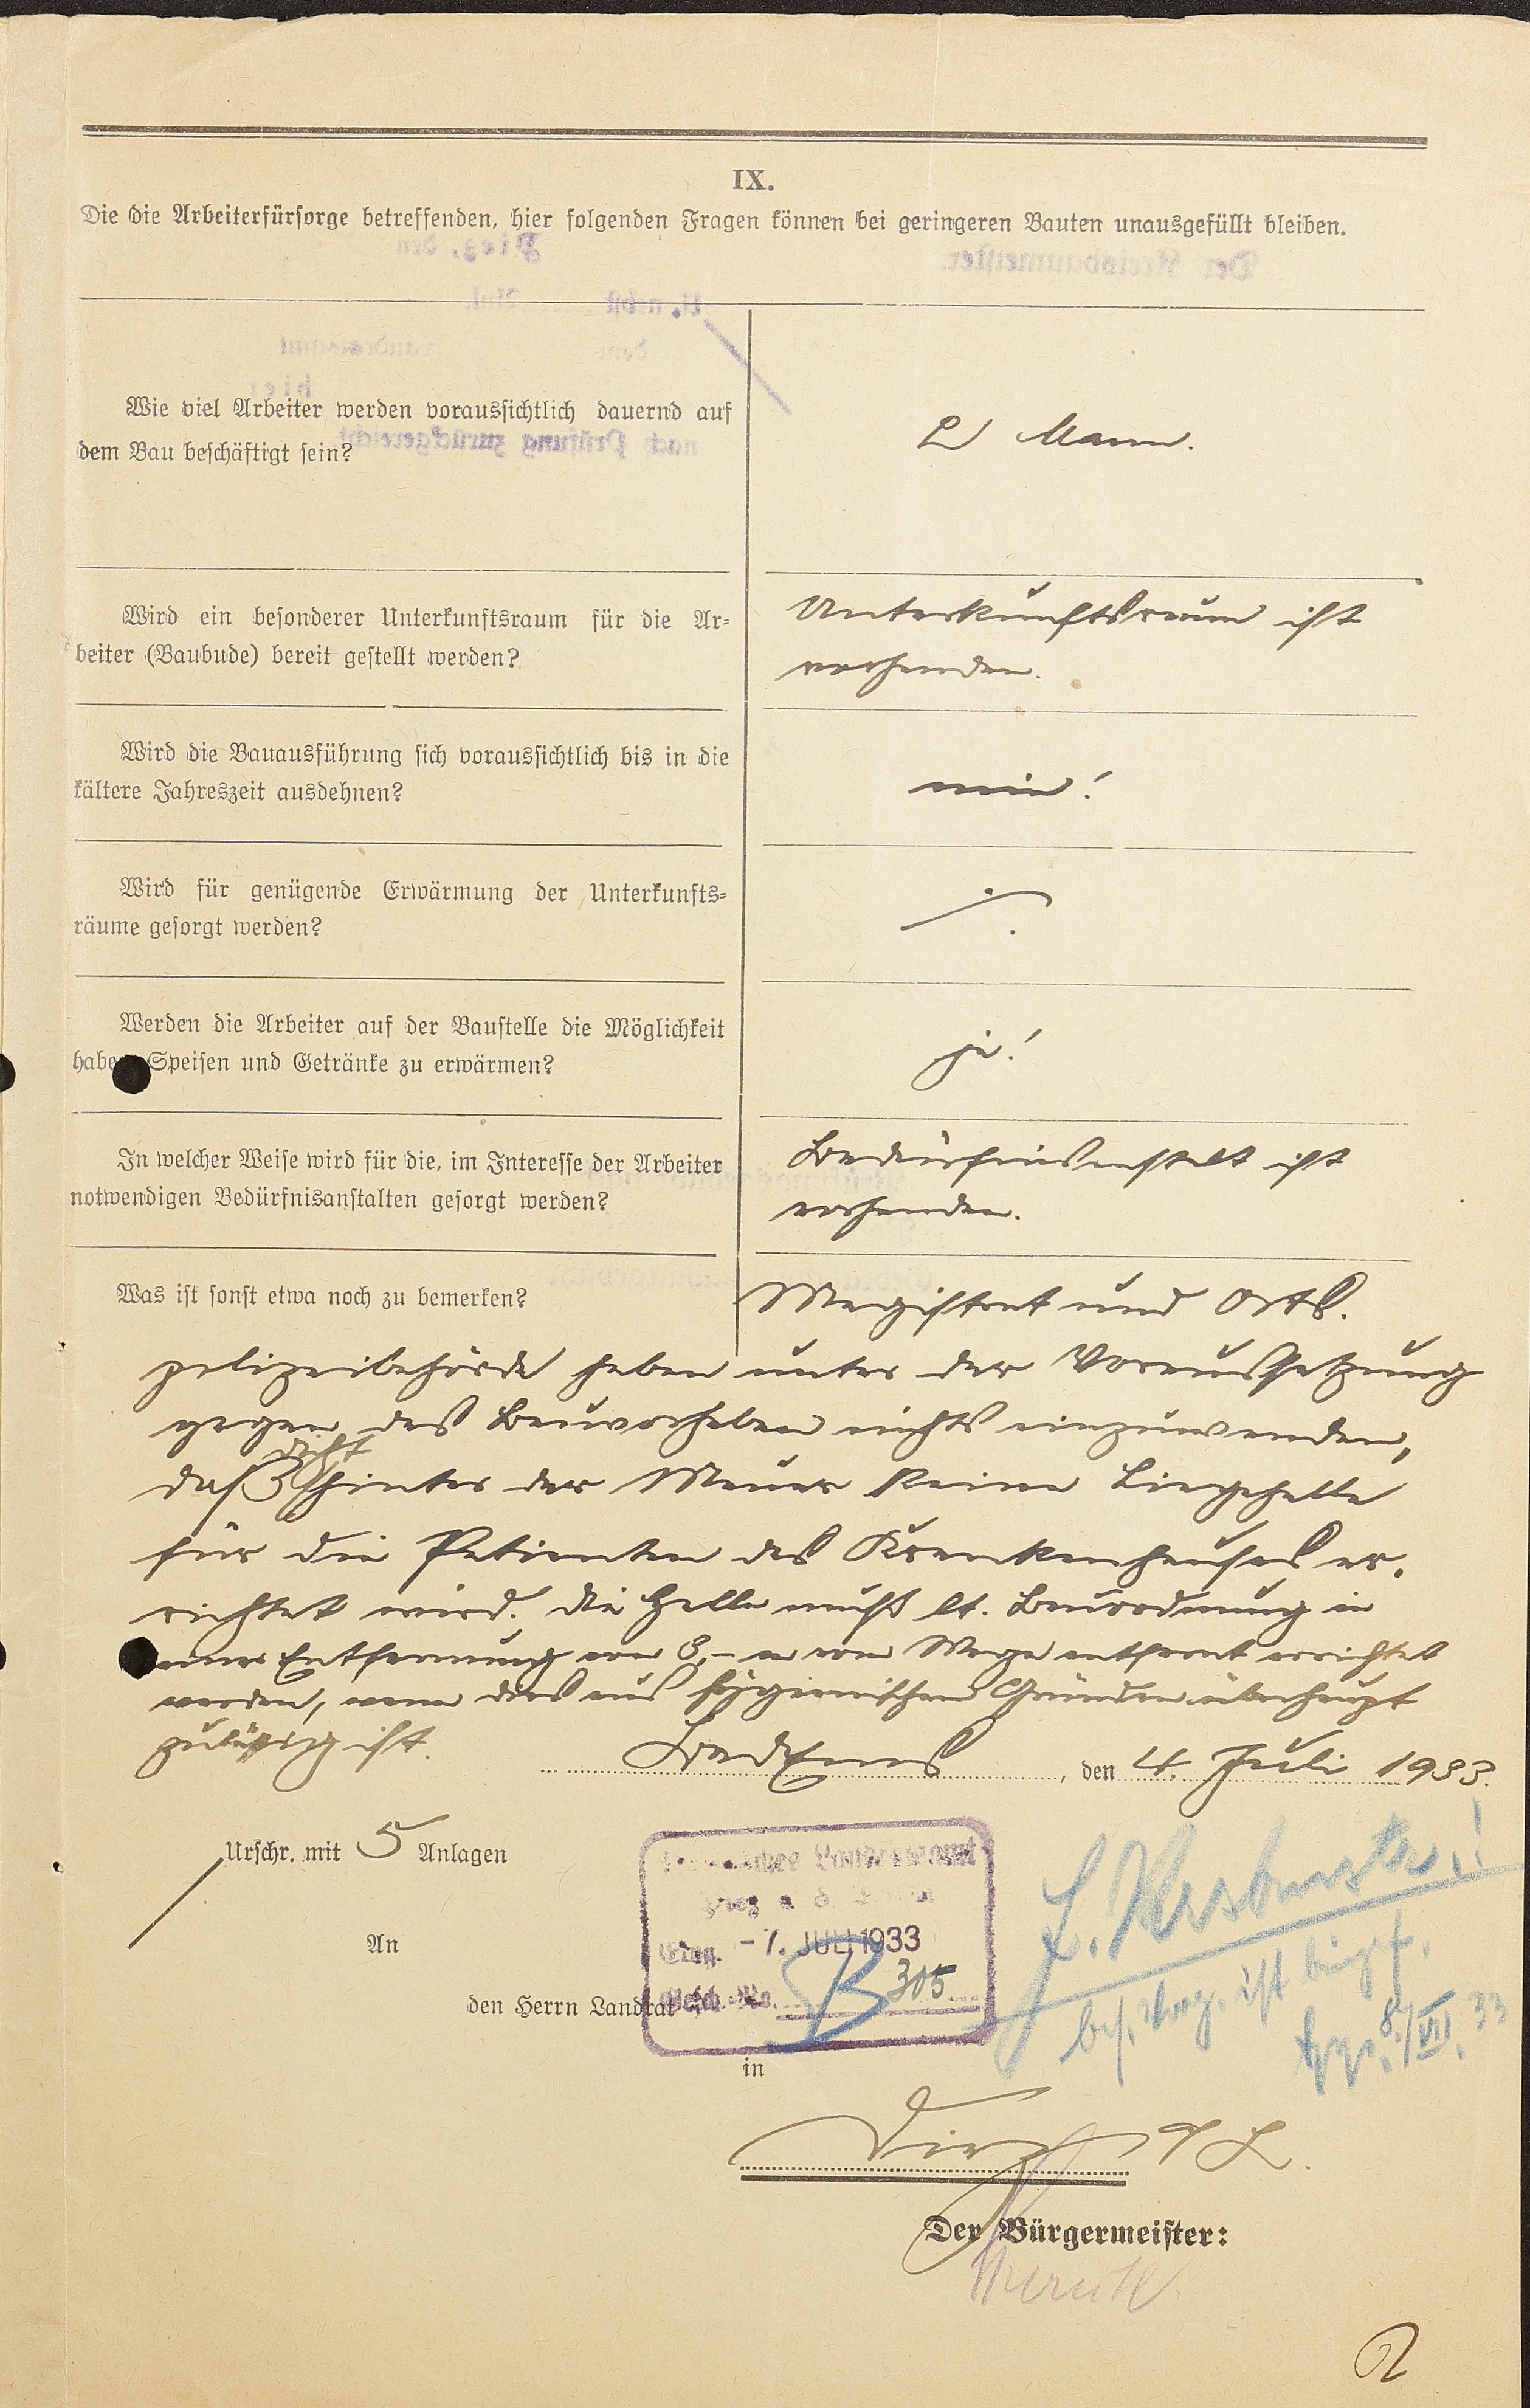 IX.
Die die Arbeiterfürsorge betreffenden, hier folgenden Fragen können bei geringeren Bauten unausgefüllt bleiben.
Wie viel Arbeiter werden voraussichtlich dauernd auf
dem Bau beschäftigt sein?
2 Mann.
Wird ein besonderer Unterkunftsraum für die Ar-
beiter (Baubude) bereit gestellt werden?
Unterkunftsraum ist
vorhanden.
Wird die Bauausführung sich voraussichtlich bis in die
kältere Jahreszeit ausdehnen?
nein!
Wird für genügende Erwärmung der Unterkunfts-
räume gesorgt werden?
Werden die Arbeiter auf der Baustelle die Möglichkeit
haben, Speisen und Getränke zu erwärmen?
ja!
In welcher Weise wird für die, im Interesse der Arbeiter
notwendigen Bedürfnisanstalten gesorgt werden?
Bedürfnisanstalt ist
vorhanden.
Was ist sonst etwa noch zu bemerken?
Magistrat und Orts-
polizeibehörde haben unter der Voraussetzung
gegen das Bauvorhaben nichts einzuwenden,
dicht
daß hinter der Mauer keine Liegehalle
für die Patienten des Krankenhauses er-
richtet wird. Die Halle muß lt. Bauordnung in
einer Entfernung von 8,- m vom Wege entfernt errichtet
werden, wenn dies aus hygienischen Gründen überhaupt
zulässig ist.
Bad Ems, den 4. Juli 1933.
Urschr. mit 5 Anlagen
An
den Herrn Landrat
Landratsamt
Eing. -7. JULI 1933
Gesch.-No. B 305
in
Diez a/L.
Der Bürgermeister:
8./VII. 33
2